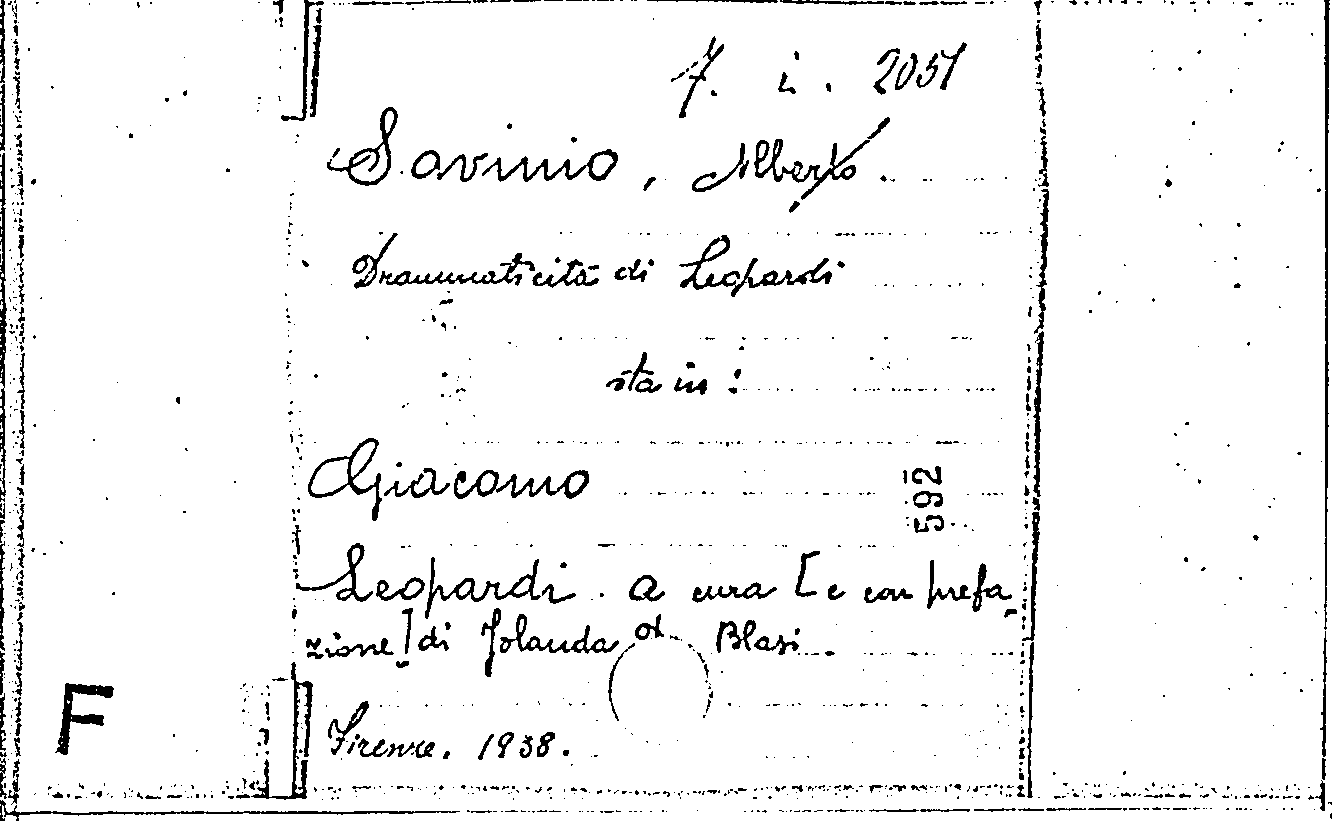 7. i. 2051
Savinio, Alberto.
Drammaticità di Leopardi
sta in:
Giacomo
592
Leopardi. A cura [e con prefa-
zione] di Jolanda de Blasi.
Firenze. 1938.
F